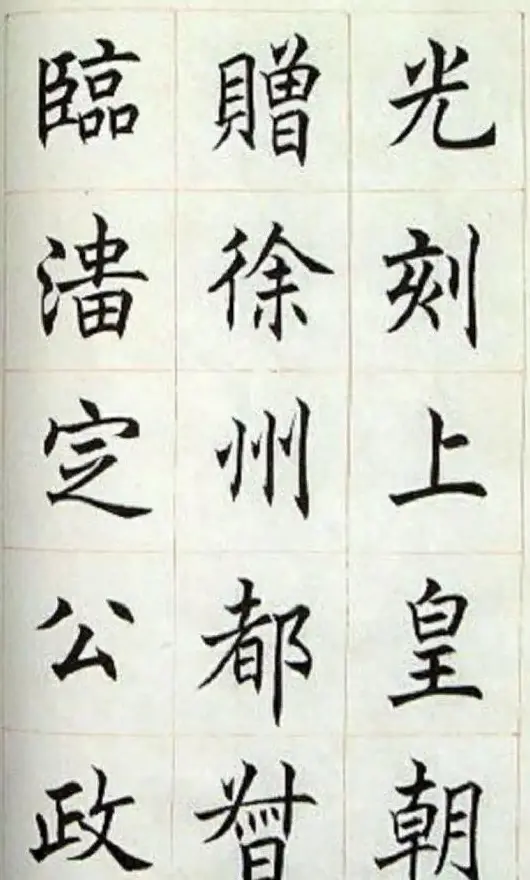 光刻上皇朝
贈徐州都督
臨淄定公政